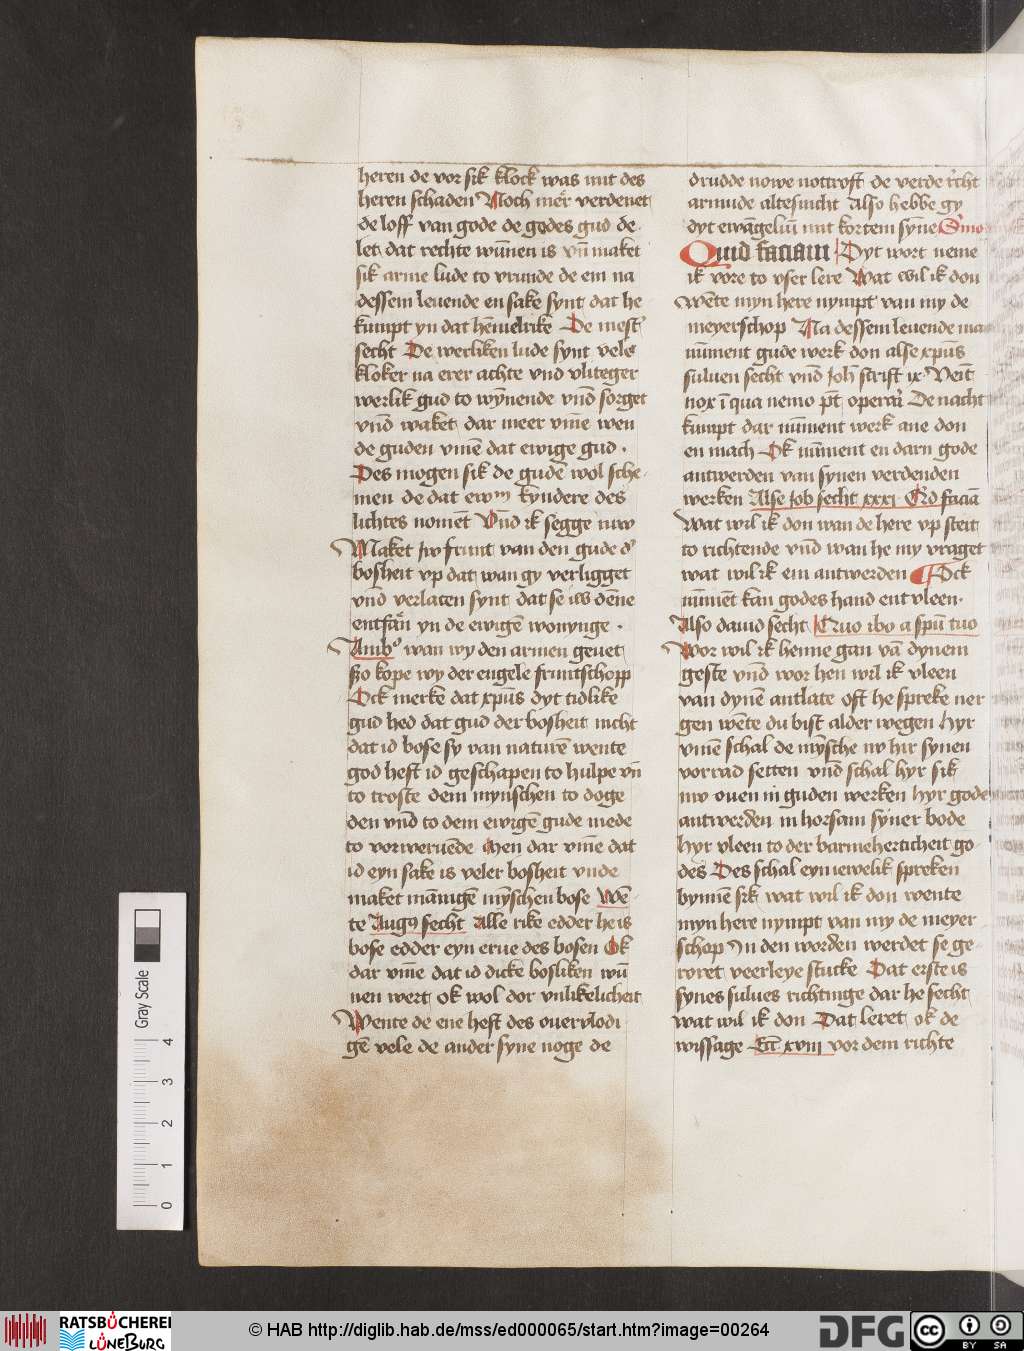 heren de vor sik klock was mit des
heren schaden Noch mer verdenet
de loff van gode de godes gud de-
let dat rechte wunnen is vn̄ maket
sik arme lude to vrunde de em na
dessem leuende en sake synt dat he
kumpt yn dat hēmelrike De mest'
secht De werliken lude synt vele
kloker na erer achte vnd vliteger
werlik gud to wynende vnd sorget
vnd waket dar meer vm̄e wen
de guden vm̄e dat ewige gud ·
Des mogen sik de gudē wol sche-
men de dat kyndere des
lichtes nomēt Vnd ik segge iuw
Maket iw frunt van den gude d'
bosheit vp dat wan gy verligget
vnd verlaten synt dat se iw dēne
entfān yn de ewigē wonynge ·
Amb' wan wy den armen geuet
szo kope wy der engele fruntschopp
Ock merke dat xp̄us dyt tidlike
gud hed dat gud der bosheit nicht
dat id bose sy van naturē wente
god heft id geschapen to hulpe vn̄
to troste dem mynschen to doge
den vnd to dem ewigē gude mede
to vorweruēde Men dar vm̄e dat
id eyn sake is veler bosheit vnde
maket mānigē mȳschen bose Wē-
te Aug9 secht Alle rike edder he is
bose edder eyn erue des bosen Ok
dar vm̄e dat id dicke bosliken wū
nen wert ok wol dor vnlikelicheit
Wente de ene heft des ouervlodi
gē vele de ander syne noge de
drudde nowe nottroft de verde
armude altesuicht Also hebbe gy
dyt ewāgeliū mit kortem syne
Quid faciam Dyt wort neme
ik vore to vser lere Wat wil ik don
wēte myn here nympt van my de
meyerschop Na dessem leuende
nūment gude werk don alse xp̄us
suluen secht vnd Joh̄ scrift ix' Veīt
nox ī qua nemo p̄t operar̄ De nacht
kumpt dar nūment werk ane don
en mach Ok nūment en darn gode
antwerden van synen verdenden
werken Alse job secht xxxi Q'd faciā
Wat wil ik don wan de here vp steit
to richtende vnd wan he my vraget
wat wil ik em antwerden Ock
nūmēt kan godes hand ent vleen·
Also dauid secht Q'uo ibo a spū tuo
Wor wil ik henne gan vā dynem
geste vnd wor hen wil ik vleen
van dynē antlate oft he spreke ner
gen wēte du bist alder wegen Hyr
vm̄e schal de mȳsche nv hir synen
vorrad setten vnd schal hyr sik
nw ouen in guden werken Hyr gode
antwerden in horsam syner bode
hyr vleen to der barmeherticheit go-
des Des schal eyn iewelik spreken
bynnē sik wat wil ik don wente
myn here nympt van my de meyer
schop In den worden werdet se ge-
roret veerleye stucke Dat erste is
synes sulues richtinge dar he secht
wat wil ik don Dat leret ok de
wissage xviii vor dem richte
Gray Scale
4
3
2
1
0
RATSBÜCHEREI
LÜNEBURG
© HAB http://diglib.hab.de/mss/ed000065/start.htm?image=00264
DFG
cc
BY SA